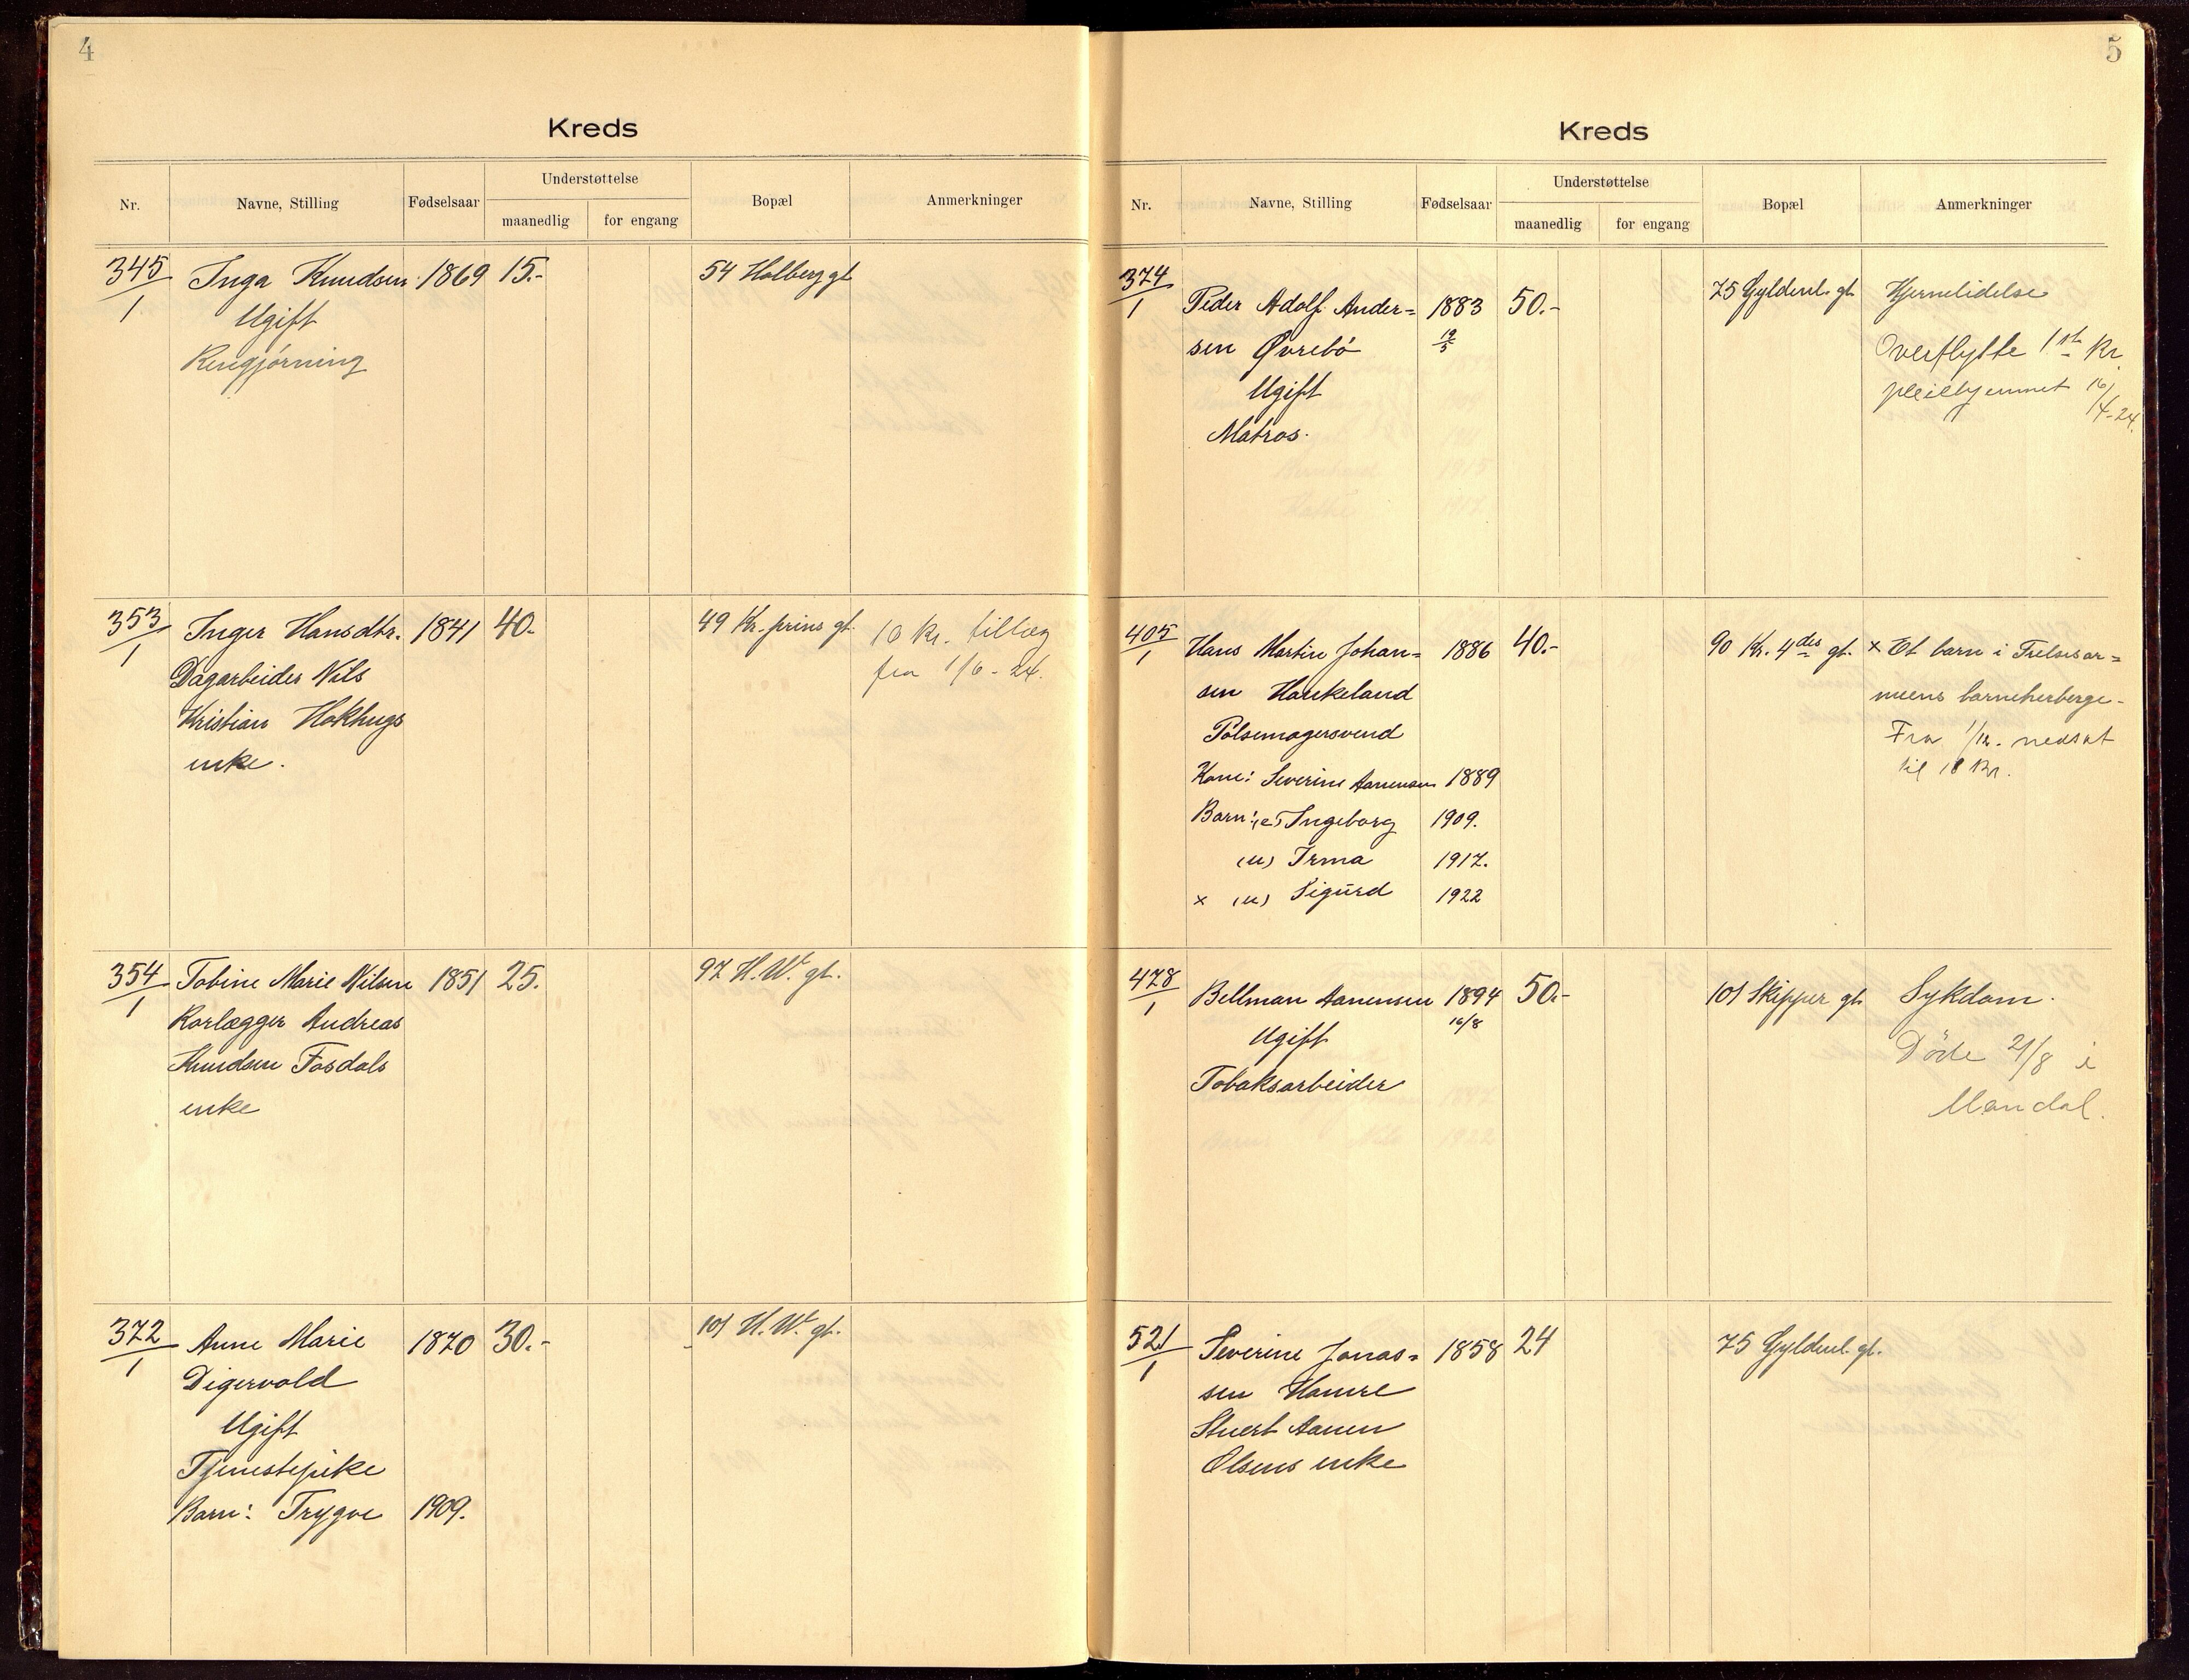 4
Kreds
Nr.
Navne, Stilling
Fødselsaar
Understøttelse
maanedlig
for engang
Bopæl
Anmerkninger
345/1 Inga Knudsen 1869 15.- 54 Holberg gt
Ugift
Rengjørning
353/1 Inger Hansdtr. 1841 40.- 49 Kr. prins gt. 10 Kr. tillæg
Dagarbeider Nils fra 1/6-24.
Kristian Hokhugs
enke.
354/1 Tobine Marie Nilsen 1851 25. 97 H. W. gt.
Rorlægger Andreas
Knudsen Fosdals
enke
372/1 Anne Marie 1870 30.- 101 H. W. gt.
Digervold
Ugift
Tjenestepike
Barn: Trygve 1909.
5
Kreds
Nr.
Navne, Stilling
Fødselsaar
Understøttelse
maanedlig
for engang
Bopæl
Anmerkninger
374/1 Peder Adolf Ander= 1883 50.- 75 Gyldenl. gt. Hjernelidelse
sen Øvrebö 19/5 Overflytte 1st Kr.
Ugift pleiehjemmet 16/4-24.
Matros.
405/1 Hans Martin Johan= 1886 40.- 90 Kr. 4des gt. x Et barn i Frelsesar=
sen Haukeland meens barneherberge.
Pölsemagersvend Fra 1/12. nedsat
til 18 Kr.
Kone: Severine Aanensen 1889
Barn: (e) Ingeborg 1909.
(u) Irma 1917.
x (u) Sigurd 1922
478/1 Bellman Aanensen 1894 50.- 101 Skipper gt. Sykdom.
16/8
Ugift Döde 21/8 i
Tobaksarbeider Mandal.
521/1 Severine Jonas= 1858 24 75 Gyldenl. gt.
sen Hamre
Stuert Aanen
Olsens enke